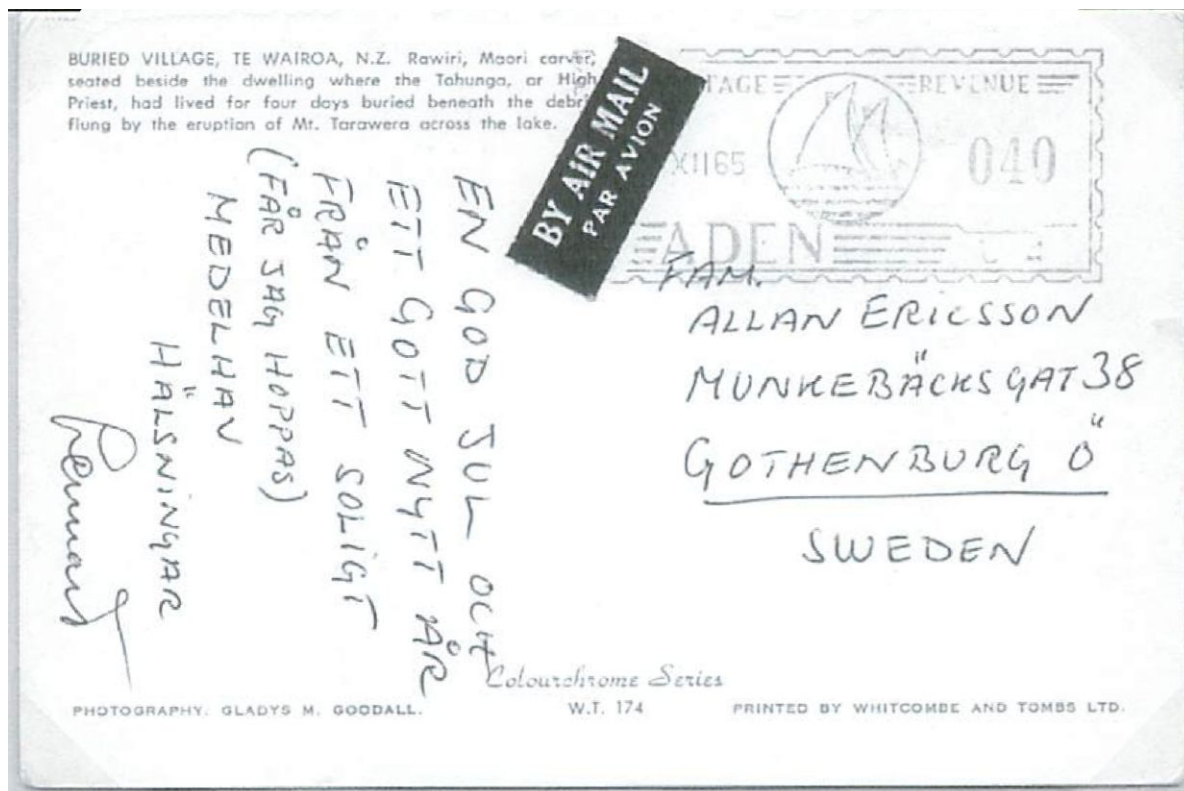 BURIED VILLAGE, TE WAIROA, N.Z. Rawiri, Maori carver,
seated beside the dwelling where the Tahunga, or High
Priest, had lived for four days buried beneath the debris
flung by the eruption of Mt. Tarawera across the lake.
BY AIR MAIL
PAR AVION
REVENUE
XII65
040
ADEN
EN GOD JUL OCH
ETT GOTT NYTT ÅR
FRÅN ETT SOLIGT
(FÅR JAG HOPPAS)
MEDELHAV
HÄLSNINGAR
Lennart
FAM.
ALLAN ERICSSON
MUNKEBÄCKSGAT 38
GOTHENBURG Ö
SWEDEN
Colourchrome Series
PHOTOGRAPHY. GLADYS M. GOODALL.
W.T. 174
PRINTED BY WHITCOMBE AND TOMBS LTD.